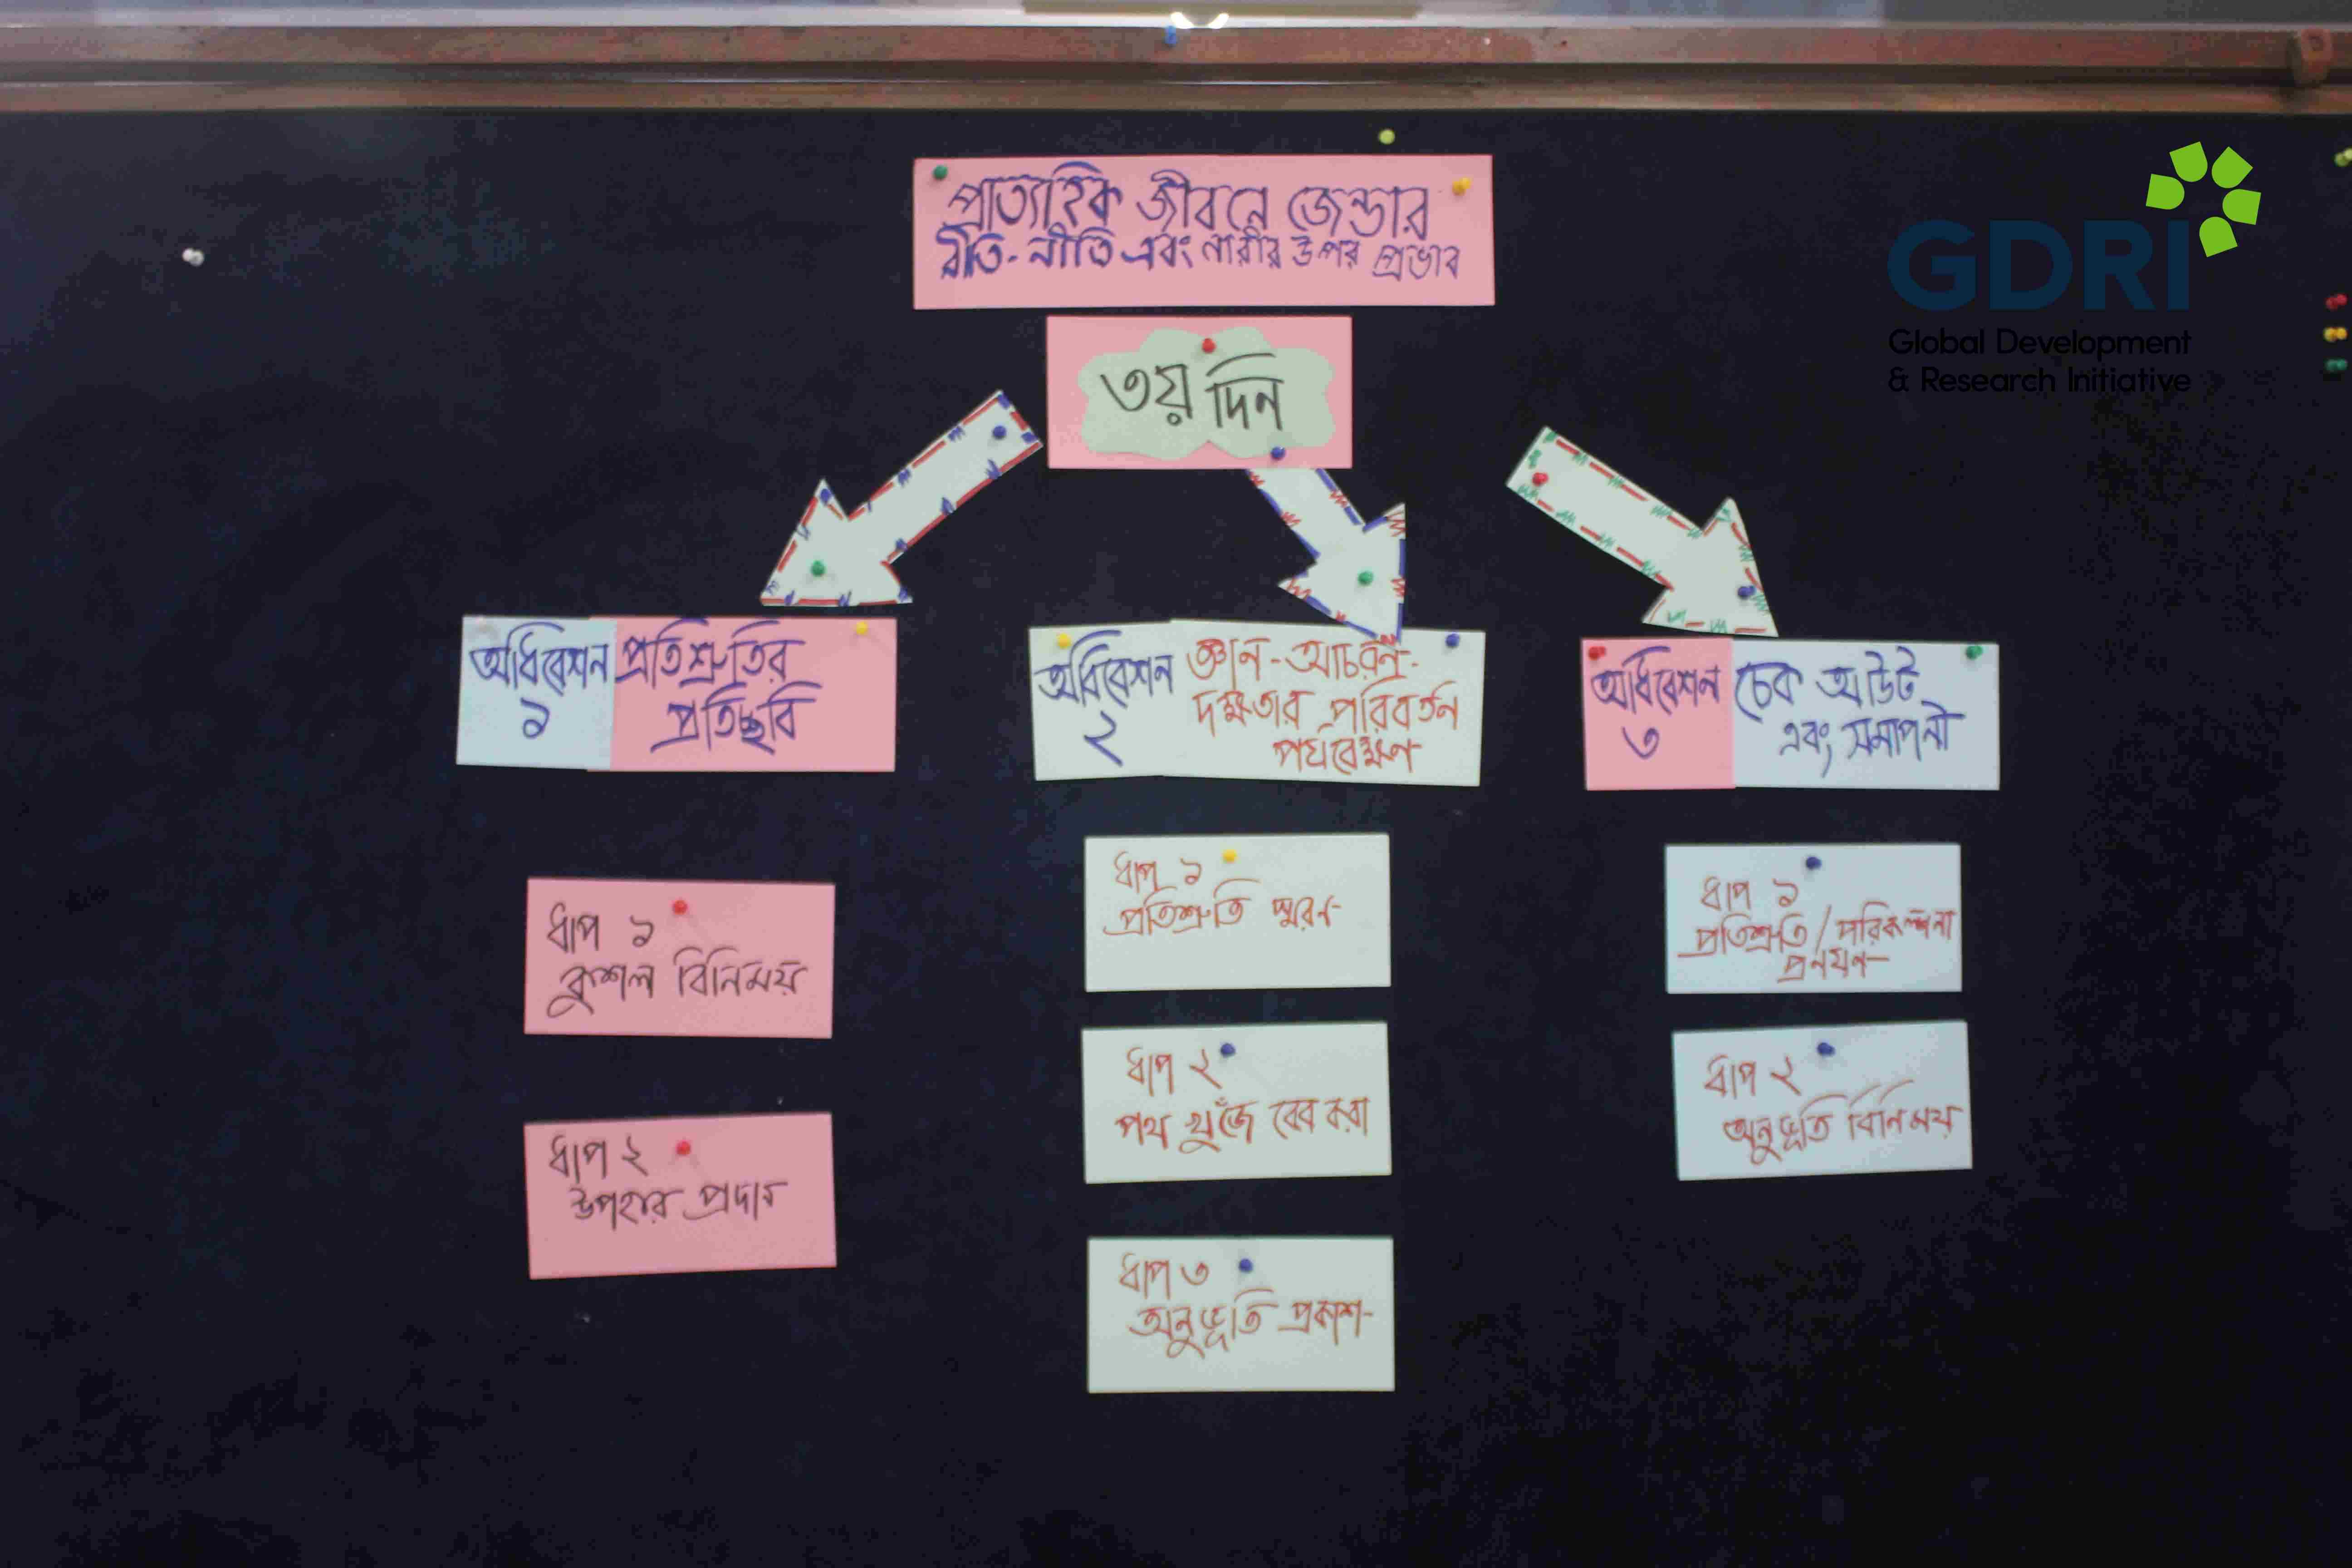 প্রাত্যহিক জীবনে জেন্ডার
রীতি-নীতি এবং নারীর উপর প্রভাব
GDRI
Global Development
& Research Initiative
৩য় দিন
অধিবেশন
১
প্রতিশ্রুতির
প্রতিচ্ছবি
ধাপ ১
কুশল বিনিময়
ধাপ ২
উপহার প্রদান
অধিবেশন
২
জ্ঞান-আচরণ-
দক্ষতার পরিবর্তন
পর্যবেক্ষণ
ধাপ ১
প্রতিশ্রুতি স্মরণ
ধাপ ২
পথ খুঁজে বের করা
ধাপ ৩
অনুভূতি প্রকাশ
অধিবেশন
৩
চেক আউট
এবং সমাপনী
ধাপ ১
প্রতিশ্রুতি/পরিকল্পনা
প্রনয়ণ
ধাপ ২
অনুভূতি বিনিময়